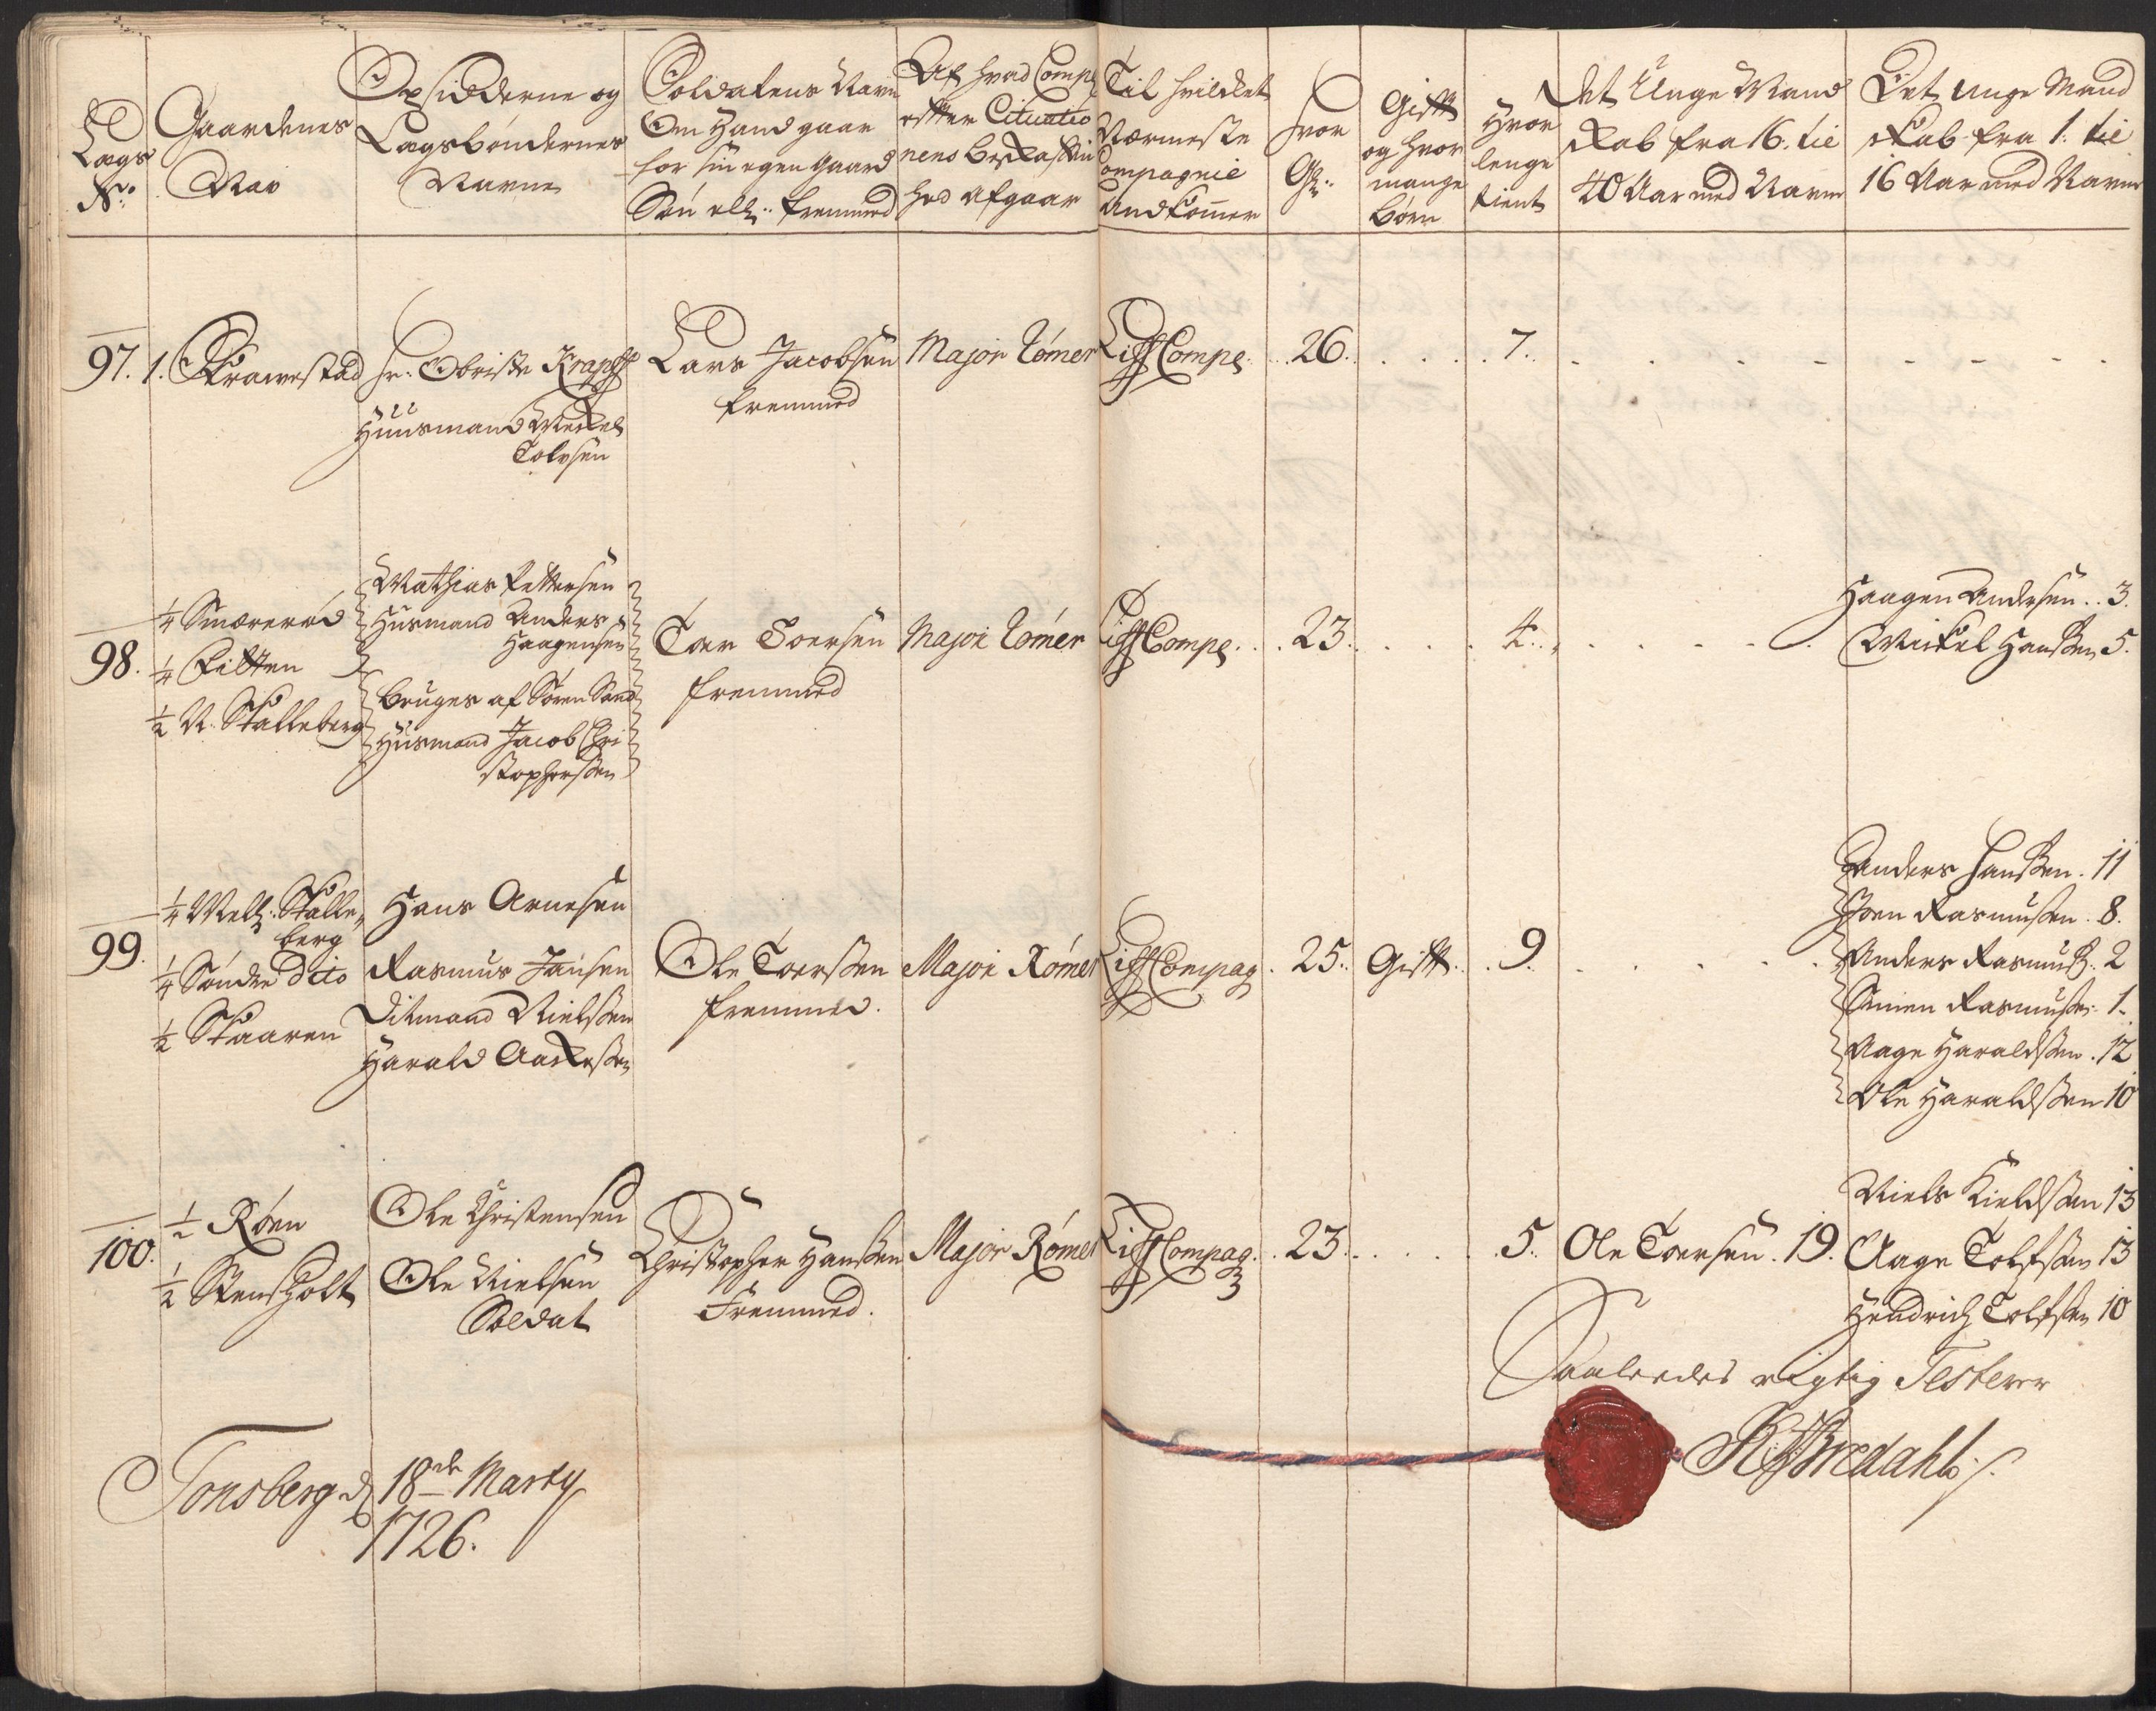 Lægs
No.
Gaardenes
Nav
Opsidderne og
Lægsbøndernes
Navne
Soldatens Navn
Om Hand gaar
for sin egen Gaard
Søn ell: fremmed
Af hvad Comp:
efter Cituatio
nens beskaffen
hed afgaar
Til hvilcket
Nærmeste
Compagnie
Andkommer
Hvor
Gl:
Gift
og hvor
mange
børn
Hvor
lenge
tient
Det Unge Mand
skab fra 16. til
40 Aar med Navne
Det unge Mand
skab fra 1. til
16 Aar med Navne
97. 1. Skrawestad
Hr. Obriste Krapff
Huusmand Mickel
Tolvsen
Lars Jacobsen
fremmed
Major Rømer
Liff Compg.
26.
7.
98.
1/4 Smørerød
1/4 Fitten
1/2 N. Skalleberg
Mathias Pettersen
Husmand Anders
Haagensen
bruges af Søren Sand
Husmand Jacob Chri
stophersen
Toer Toersen
fremmed
Major Rømer
Liff Compg.
23.
4.
Haagen Andersen 3.
Mickel Hanssen 5.
99.
1/4 Mell: Skalle-
berg
1/4 Søndre dito
1/2 Skaaren
Hans Arnesen
Rasmus Jansen
Ditmand Nielssen
Harald Aadessen
Ole Toerssen
fremmed.
Major Rømer
Liff Compag.
25.
Gift.
9.
Anders Hanssen. 11
Joen Rasmussen. 8.
Anders Rasmuss: 2
Simen Rasmussen. 1.
Aage Haraldssen. 12
Ole Haraldssen 10
100.
1/2 Røen
1/2 Stensholt
Ole Christensen
Ole Nielsen
Soldat
Christopher Hanssen
Fremmed.
Major Rømer
Liff Compag.
23.
5.
Ole Toersen. 19.
Niels Kieldssen 13
Aage Tolfssen 13
Hendrich Tolfssen 10
Saaledes rigtig Testerer
Tonsberg d 18de Marty
1726.